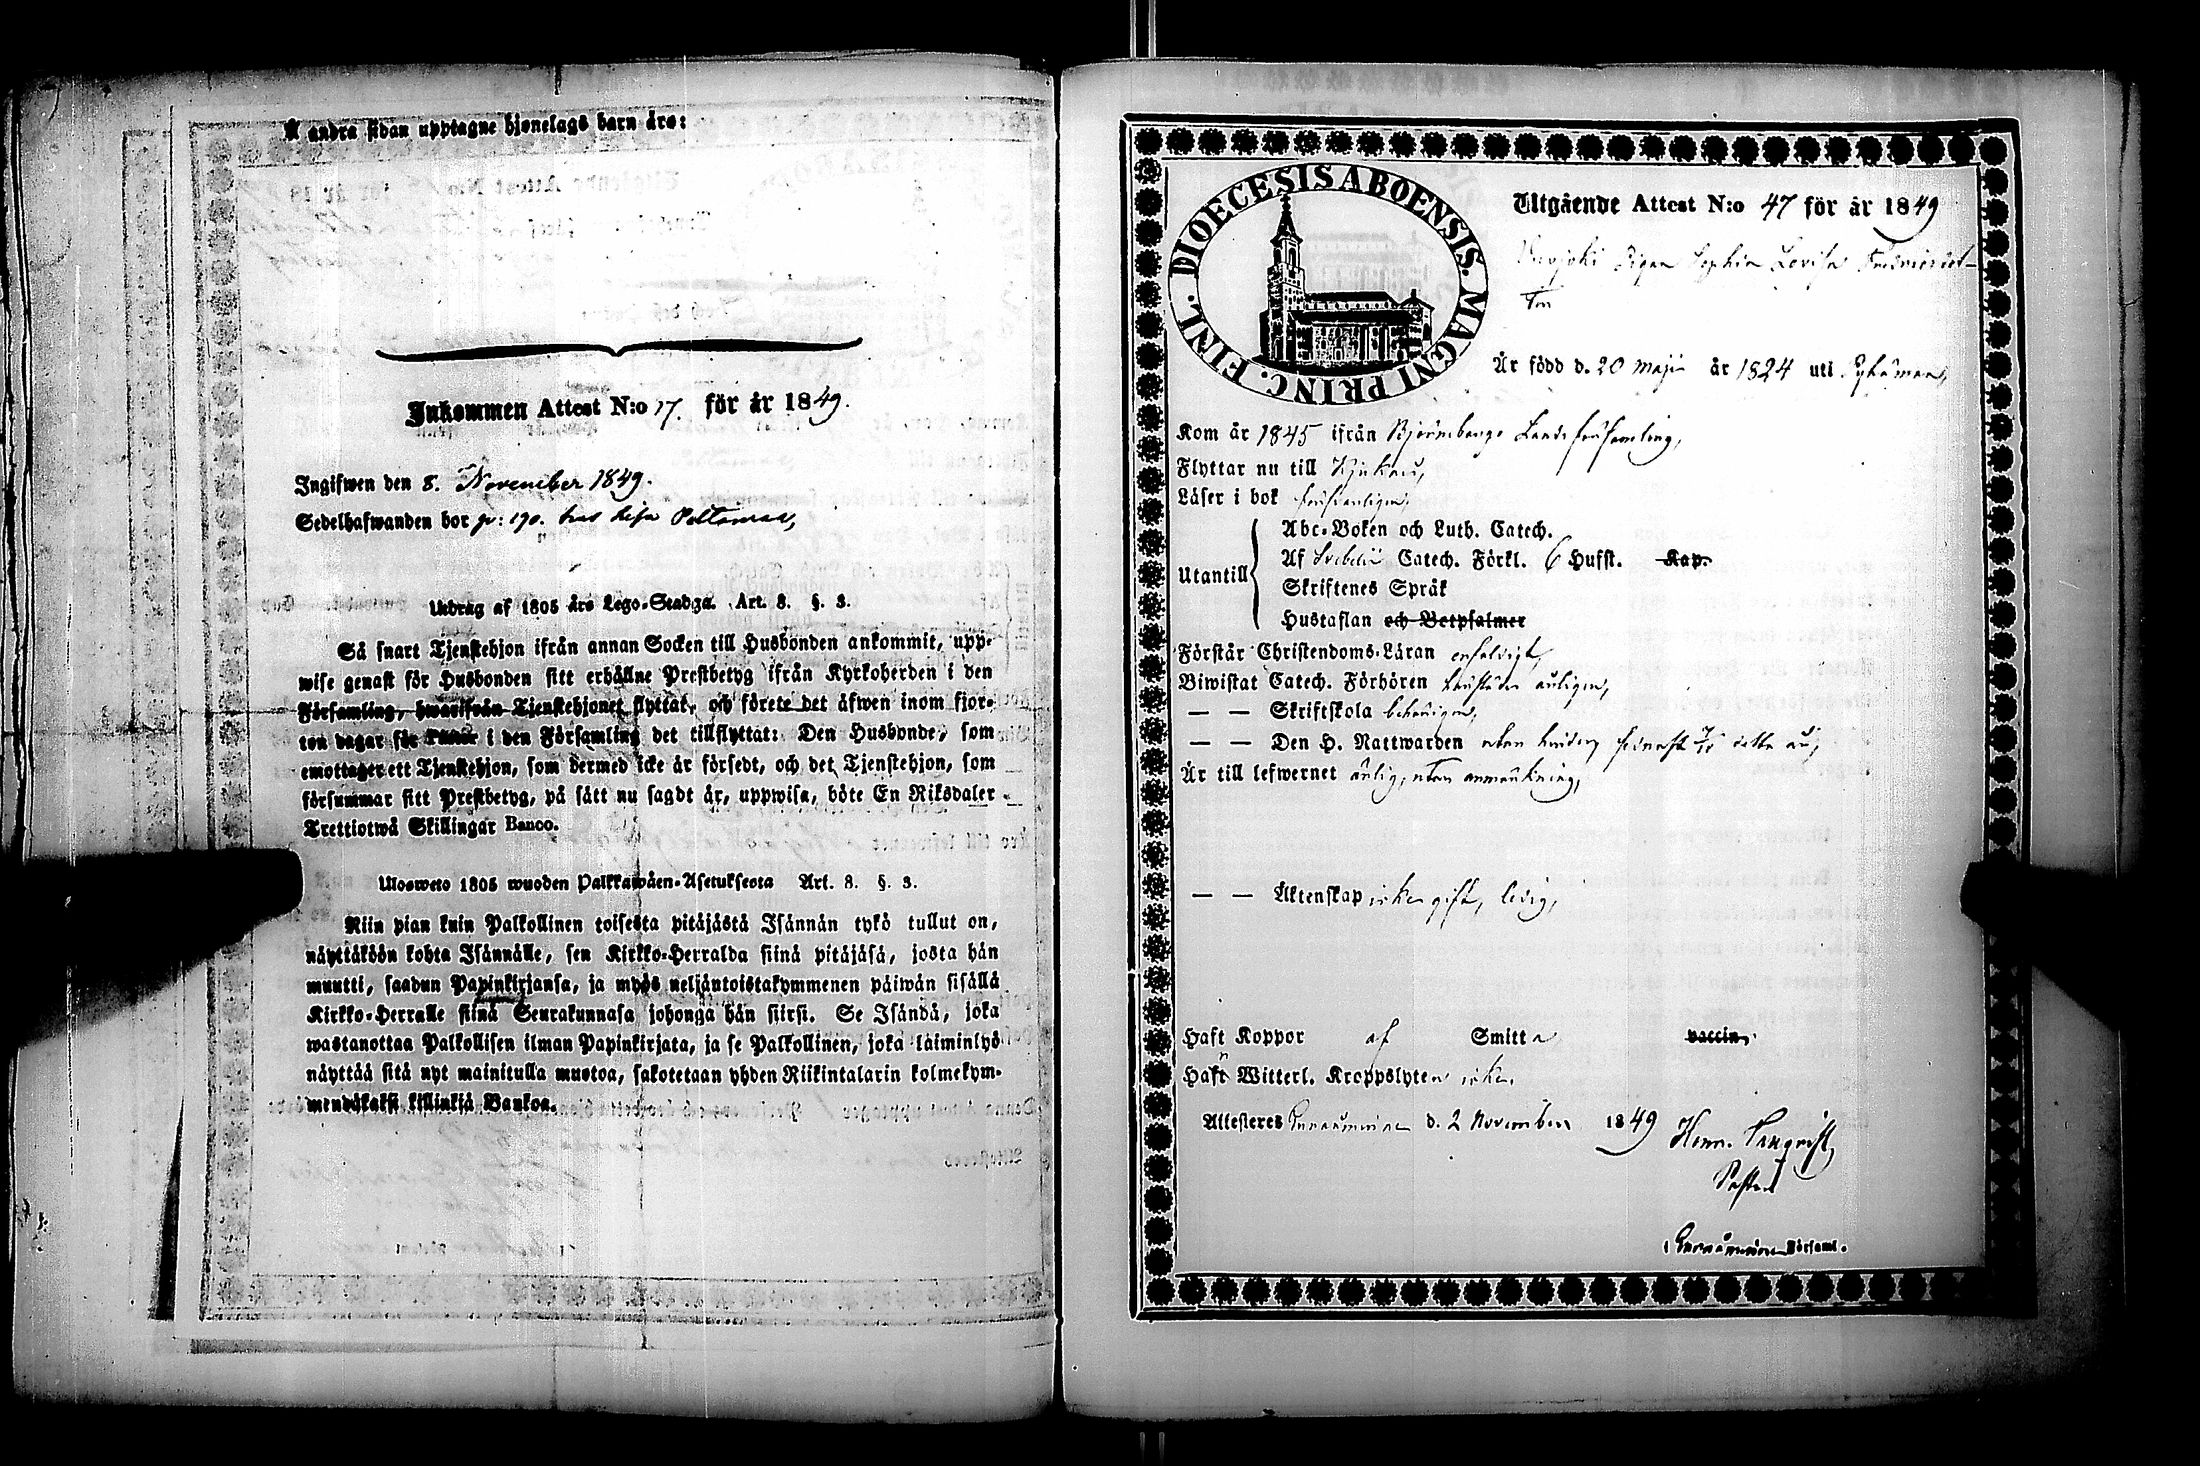 Å andra sidan upptagne hjonelags barn äro:
Inkommen Attest N:o 17. för år 1849.
Ingifwen den 8. November 1849.
Sedelhafwanden bor p: 190.
Utdrag af 1805 års Lego-Stadga. Art. 8. §. 3.
Så snart Tjenstehjon ifrån annan Socken till Husbonden ankommit, upp-
wise genast för Husbonden sitt erhållne Prestbetyg ifrån Kyrkoherden i den
Församling, hwarifrån Tjenstehjonet flyttat, och förete det äfwen inom fjor-
ton dagar för i den Församling det tillflyttat: Den Husbonde, som
emottager ett Tjenstehjon, som dermed icke är försedt, och det Tjenstehjon, som
försummar sitt Prestbetyg, på sätt nu sagdt är, uppwisa, böte En Riksdaler
Trettiotwå Skillingar Banco.
Ulosweto 1805 wuoden Palkkawäen-Asetuksesta Art. 8. §. 3.
Niin pian kuin Palkollinen toisesta pitäjästä Isännän tykö tullut on,
näyttäköön kohta Isännälle, sen Kirkko-Herralda siinä pitäjäsä, josta hän
muutti, saadun Papinkirjansa, ja myös neljäntoistakymmenen päiwän sisällä
Kirkko-Herralle siinä Seurakunnasa johonga hän siirsi. Se Isändä, joka
wastanottaa Palkollisen ilman Papinkirjata, ja se Palkollinen, joka laiminlyö
näyttää sitä nyt mainitulla muotoa, sakotetaan yhden Riikintalarin kolmekym-
mendäkaksi killinkiä Bankoa.
DIOECESIS ABOENSIS. MAGNI PRINC. FINL.
Utgående Attest N:o 47 för år 1849
Pigan Sophia Lovisa
Är född d. 20 Maji år 1824 uti
Kom år 1845 ifrån Björneborgs Lands församling,
Flyttar nu till Kjukais,
Läser i bok försvarligen,
Abc-Boken och Luth. Catech.
Af Svebelii Catech. Förkl. 6 Hufst. Kap.
Utantill
Skriftenes Språk
Hustaflan och Botpsalmer
Förstår Christendoms-Läran enfaldigt,
Biwistat Catech. Förhören
— — Skriftskola behörigen,
— — Den H. Nattwarden utan hinder, sednast detta år,
Är till lefwernet ärlig, utan anmärkning,
— — Äktenskap icke gift, ledig,
Haft Koppor af Smitta vaccin,
Haft Witterl. Kroppslyten icke.
Attesteres Euraåminne d. 2 November 1849
Pastor
i Euraåminne Församl.